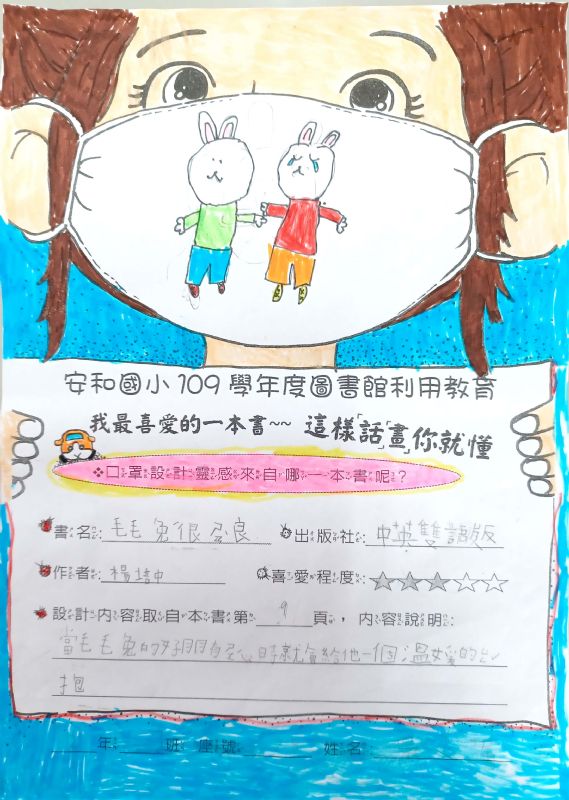 安和國小109學年度圖書館利用教育
我最喜愛的一本書~~ 這樣「話」「畫」你就懂
❖口罩設計靈感來自哪一本書呢？
書名：毛毛兔很善良 出版社：中英雙語版
作者：楊培中 喜愛程度：★★★☆☆
設計內容取自本書第9頁，內容說明：
當毛毛兔的好朋友 時就會給他一個溫暖的
抱
年 班 座號 姓名：